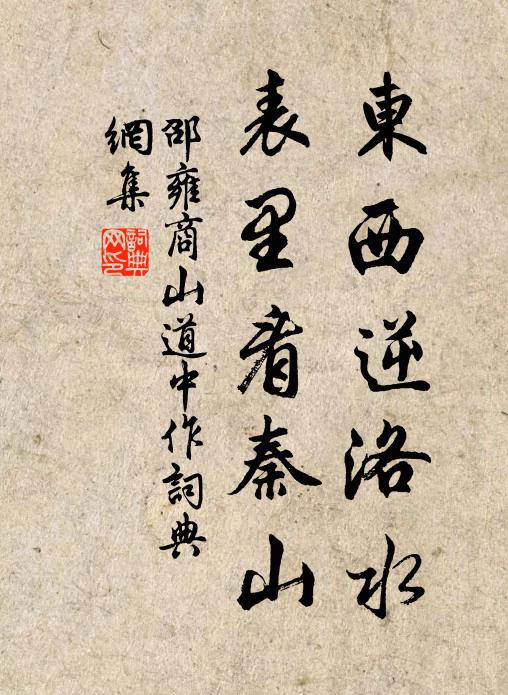 東西逆洛水
表里看秦山
邵雍商山道中作詞典
網集
詞典
网印